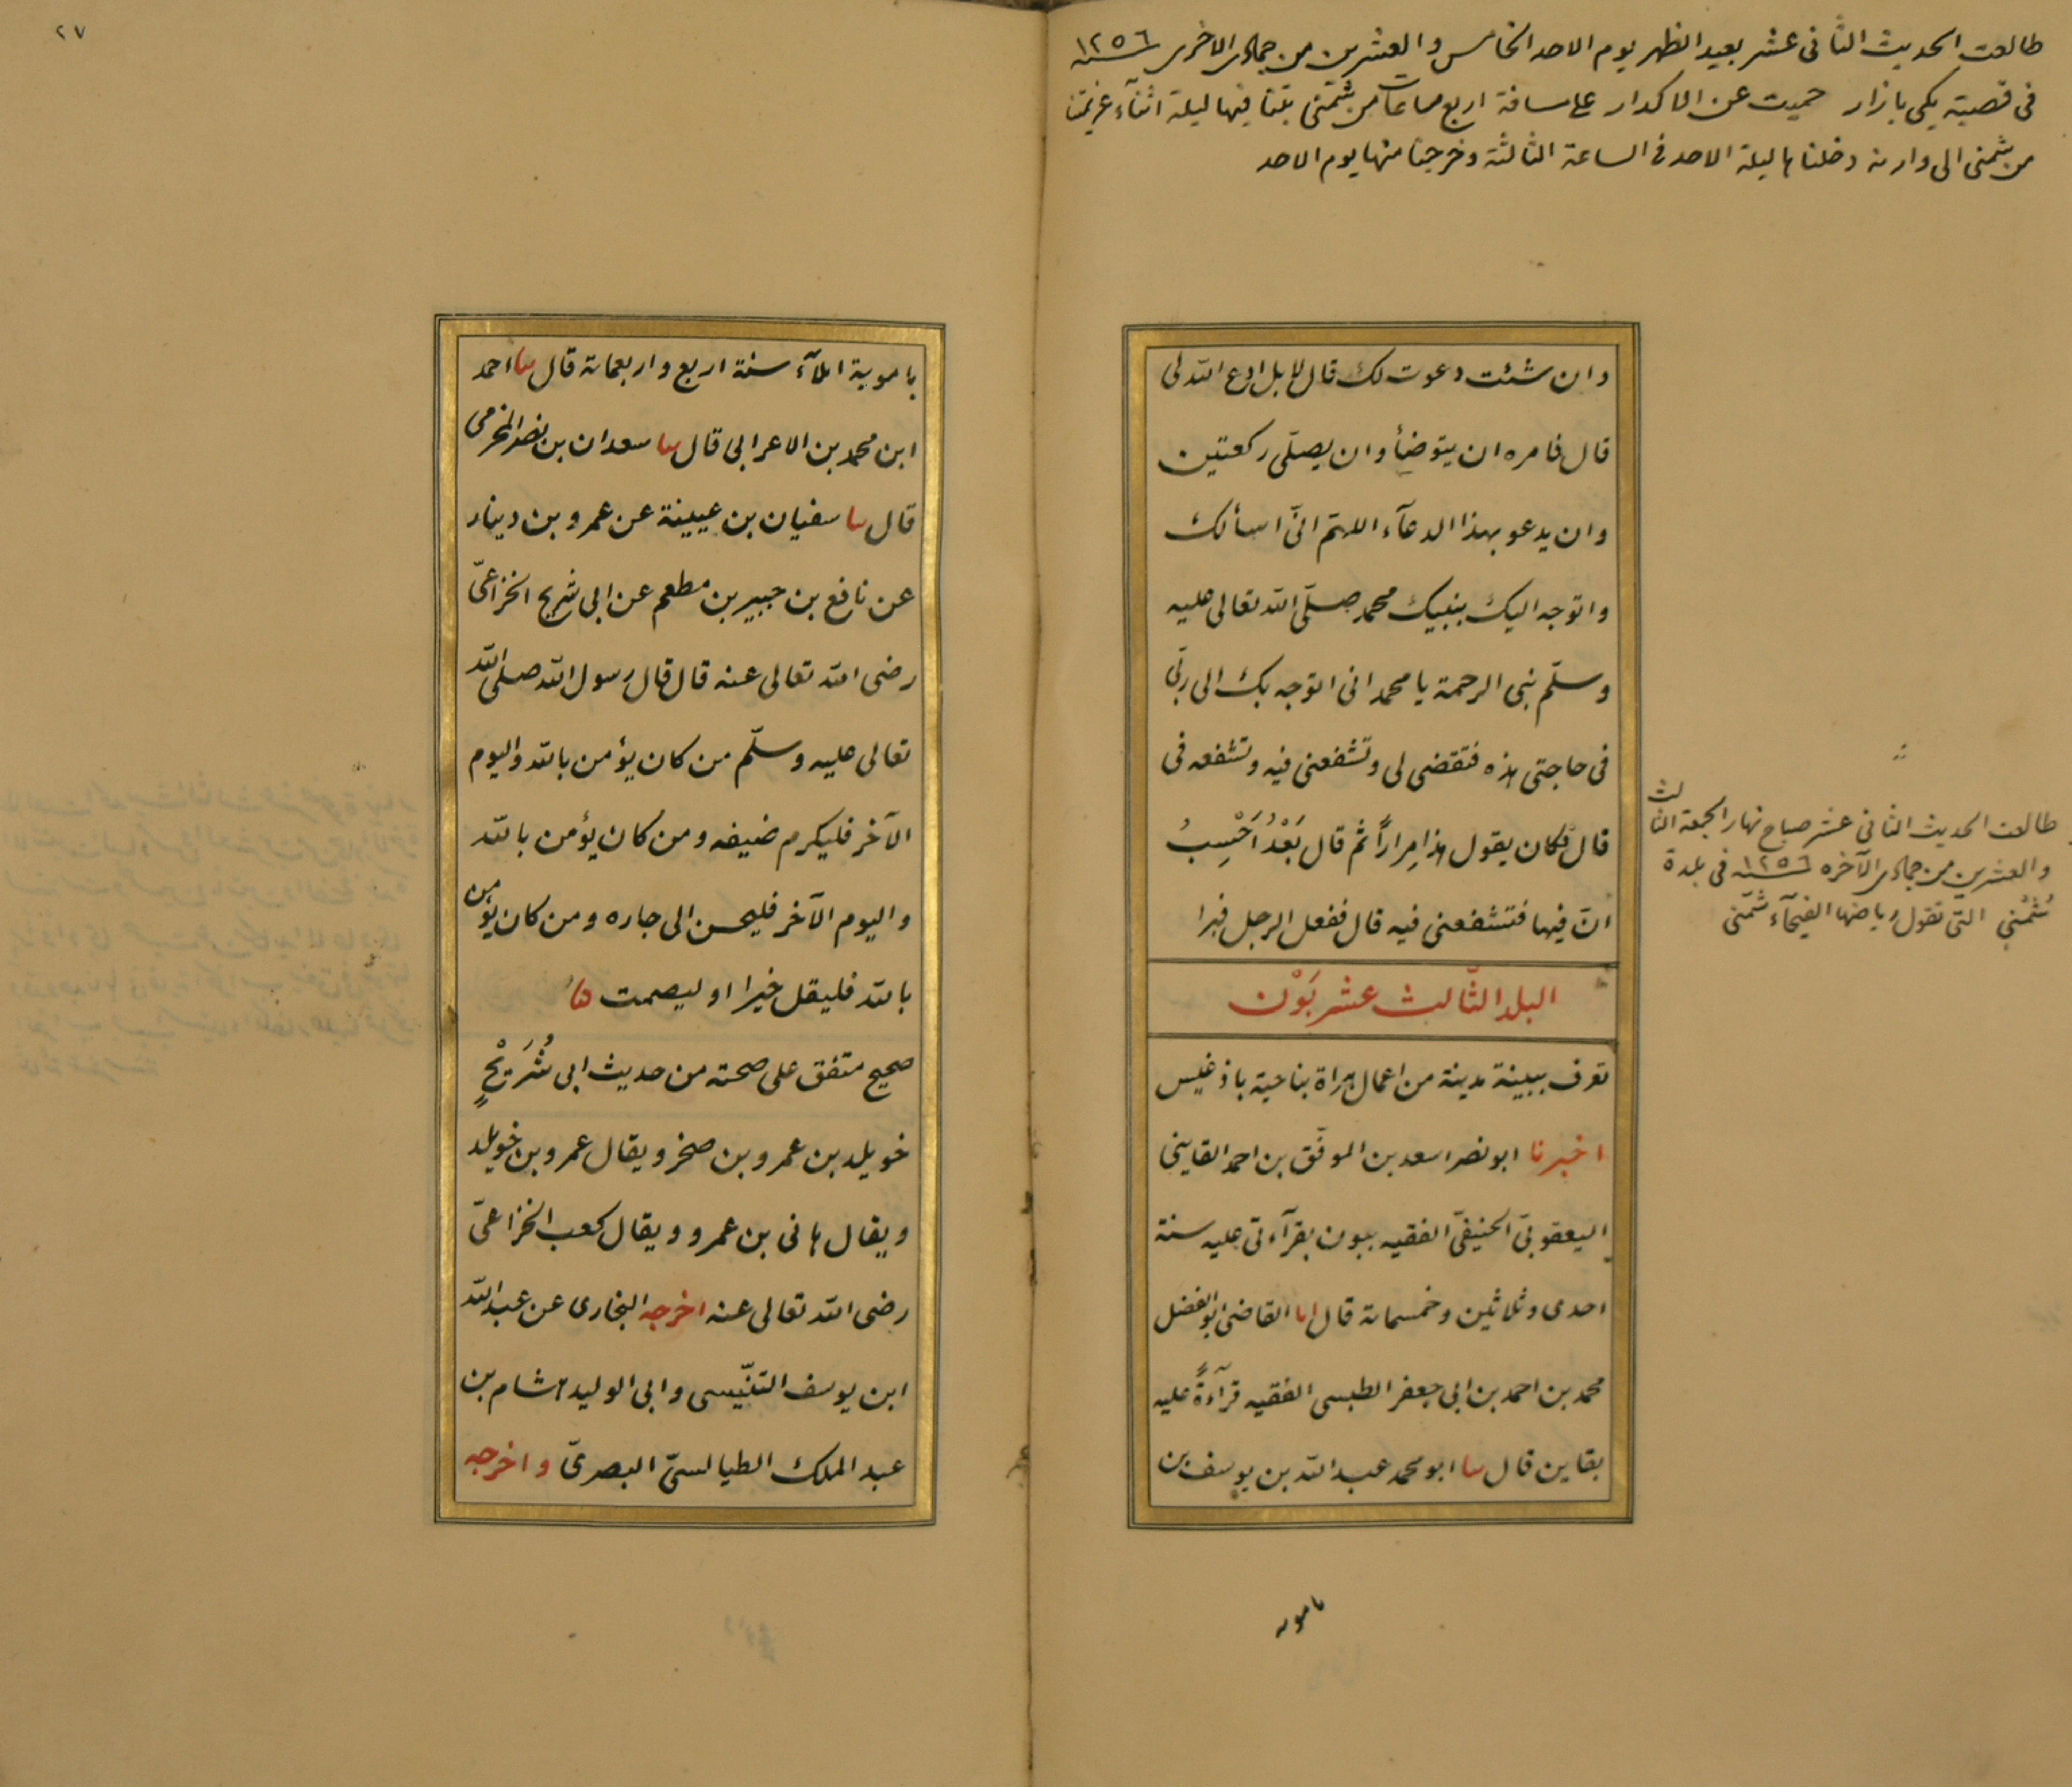 طالعت الحديث الثانى عشر بعيد الظهر يوم الاحد الخامس والعشرين من جماى الاخرى سنة ١٢٥٦
فى قصبة يكى بازار حميت عن الاكدار على مسافة اربع ساعات من شمنى بتنا فيها ليلة اثناء عزيمتنا
من شمنى الى وارنه دخلناها ليلة الاحد فى الساعة الثالثة وخرجنا منها يوم الاحد
وان شئت دعوت لك قال لا بل ادع الله لى
قال فامره ان يتوضأ وان يصلّى ركعتين
وان يدعو بهذا الدعآء اللهمّ انّى اسألك
واتوجه اليك بنبيك محمد صلّى الله تعالى عليه
وسلّم نبى الرحمة يا محمد انى اتوجه بك الى ربّى
فى حاجتى هذه فتقضى لى وتشفعنى فيه وتشفعه فى
قال فكان يقول هذا مِراراً ثم قال بَعْدُ اَحْسِبُ
انّ فيها فتشفعنى فيه قال ففعل الرجل فبرا
البلد الثّالث عشر بَوْن
تعرف ببينة مدينة من اعمال هراة بناحية باذغيس
اخبرنا ابو نصر اسعد بن الموفّق بن احمد القاينى
اليعقوبىّ الحنيفىّ الفقيه ببون بقرآءتى عليه سنة
احدى وثلاثين وخمسمائة قال انا القاضى ابو الفضل
محمد بن احمد بن ابى جعفر الطبسى الفقيه قرآءةً عليه
بقاين قال ثنا ابو محمد عبد الله بن يوسف بن
بامويه
طالعت الحديث الثانى عشر صباح نهار الجمعة الثالث
والعشرين من جماى الآخره سنة ١٢٥٦ فى بلدة
شُمْنى التى تقول رياضها الفيحآء شُمّنى
٢٧
بامويه املآء سنة اربع واربعمائة قال ثنا احمد
ابن محمد بن الاعرابى قال ثنا سعدان بن نصر المخرمى
قال ثنا سفيان بن عيينة عن عمرو بن دينار
عن نافع بن جبير بن مطعم عن ابى شريح الخزاعىّ
رضى الله تعالى عنه قال قال رسول الله صلى الله
تعالى عليه وسلّم من كان يؤمن بالله واليوم
الآخر فليكرم ضيفه ومن كان يؤمن بالله
واليوم الآخر فليحسن الى جاره ومن كان يؤمن
بالله فليقل خيرا او ليصمت هذا
صحيح متفق على صحته من حديث ابى شُرَيْحٍ
خويلد بن عمرو بن صخر ويقال عمرو بن خويلد
ويقال هانى بن عمرو ويقال كعب الخزاعىّ
رضى الله تعالى عنه اخرجه البخارى عن عبد الله
ابن يوسف التنّيسى وابى الوليد هشام بن
عبد الملك الطيالسىّ البصرىّ واخرجه